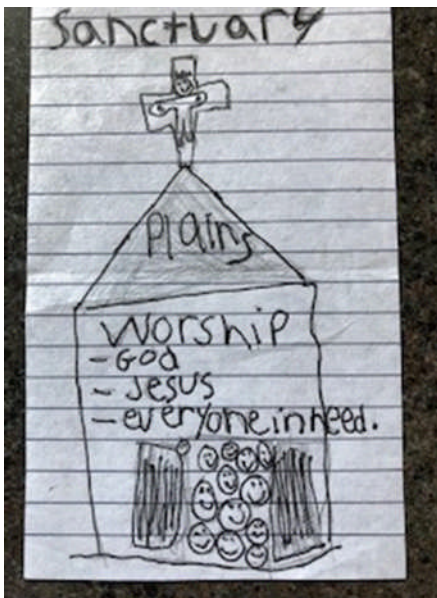 Sanctuary
Plains
Worship
- God
- Jesus
- everyone in need.